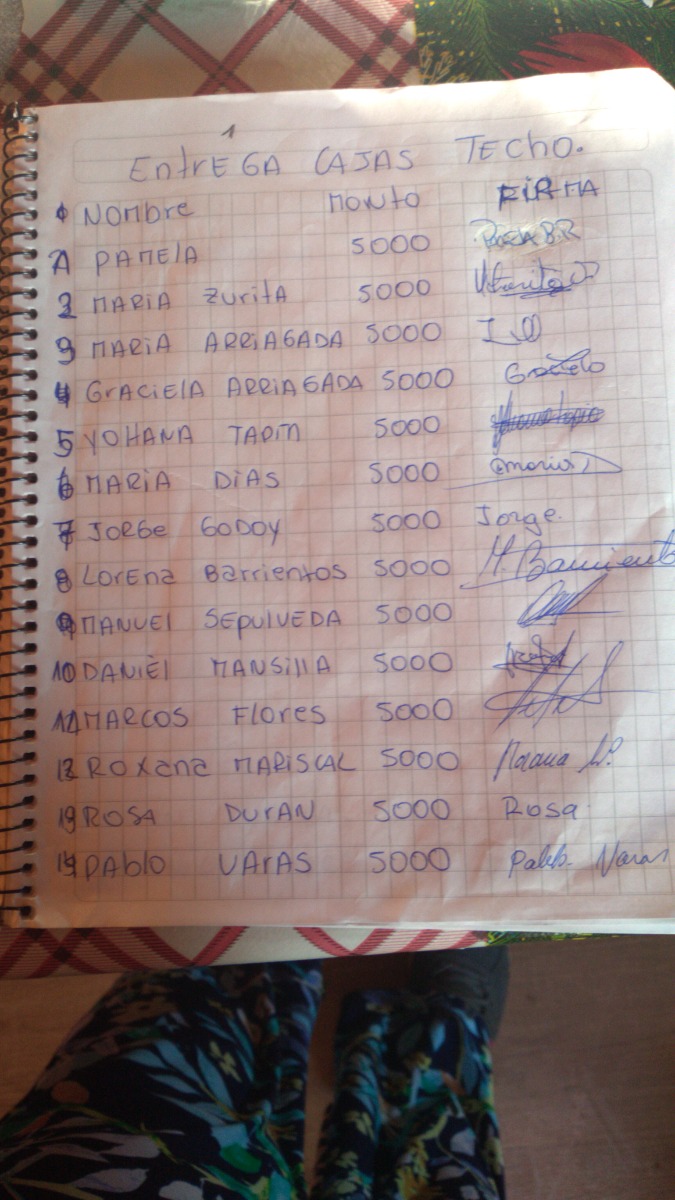 1
EntrEGA CAJAS TECHO.
Nombre Monto FIRMA
1 PAMElA 5000
2 MARIA ZuritA 5000
3 MARiA ARRiAGADA 5000
4 GrACiElA ARRiAGADA 5000 Graciela
5 YOHANA 5000
6 MARiA DiAS 5000 maria D
7 JORGE GODOY 5000 Jorge.
8 LorEna Barrientos 5000 M. Barrientos
9 MANUEl SEpulVEDA 5000
10 DANiEl MANSillA 5000
11 MARCOS FlorES 5000
12 Roxana MARiSCAL 5000
13 ROSA DurAN 5000 Rosa
14 PAblo VArAS 5000 Pablo Varas